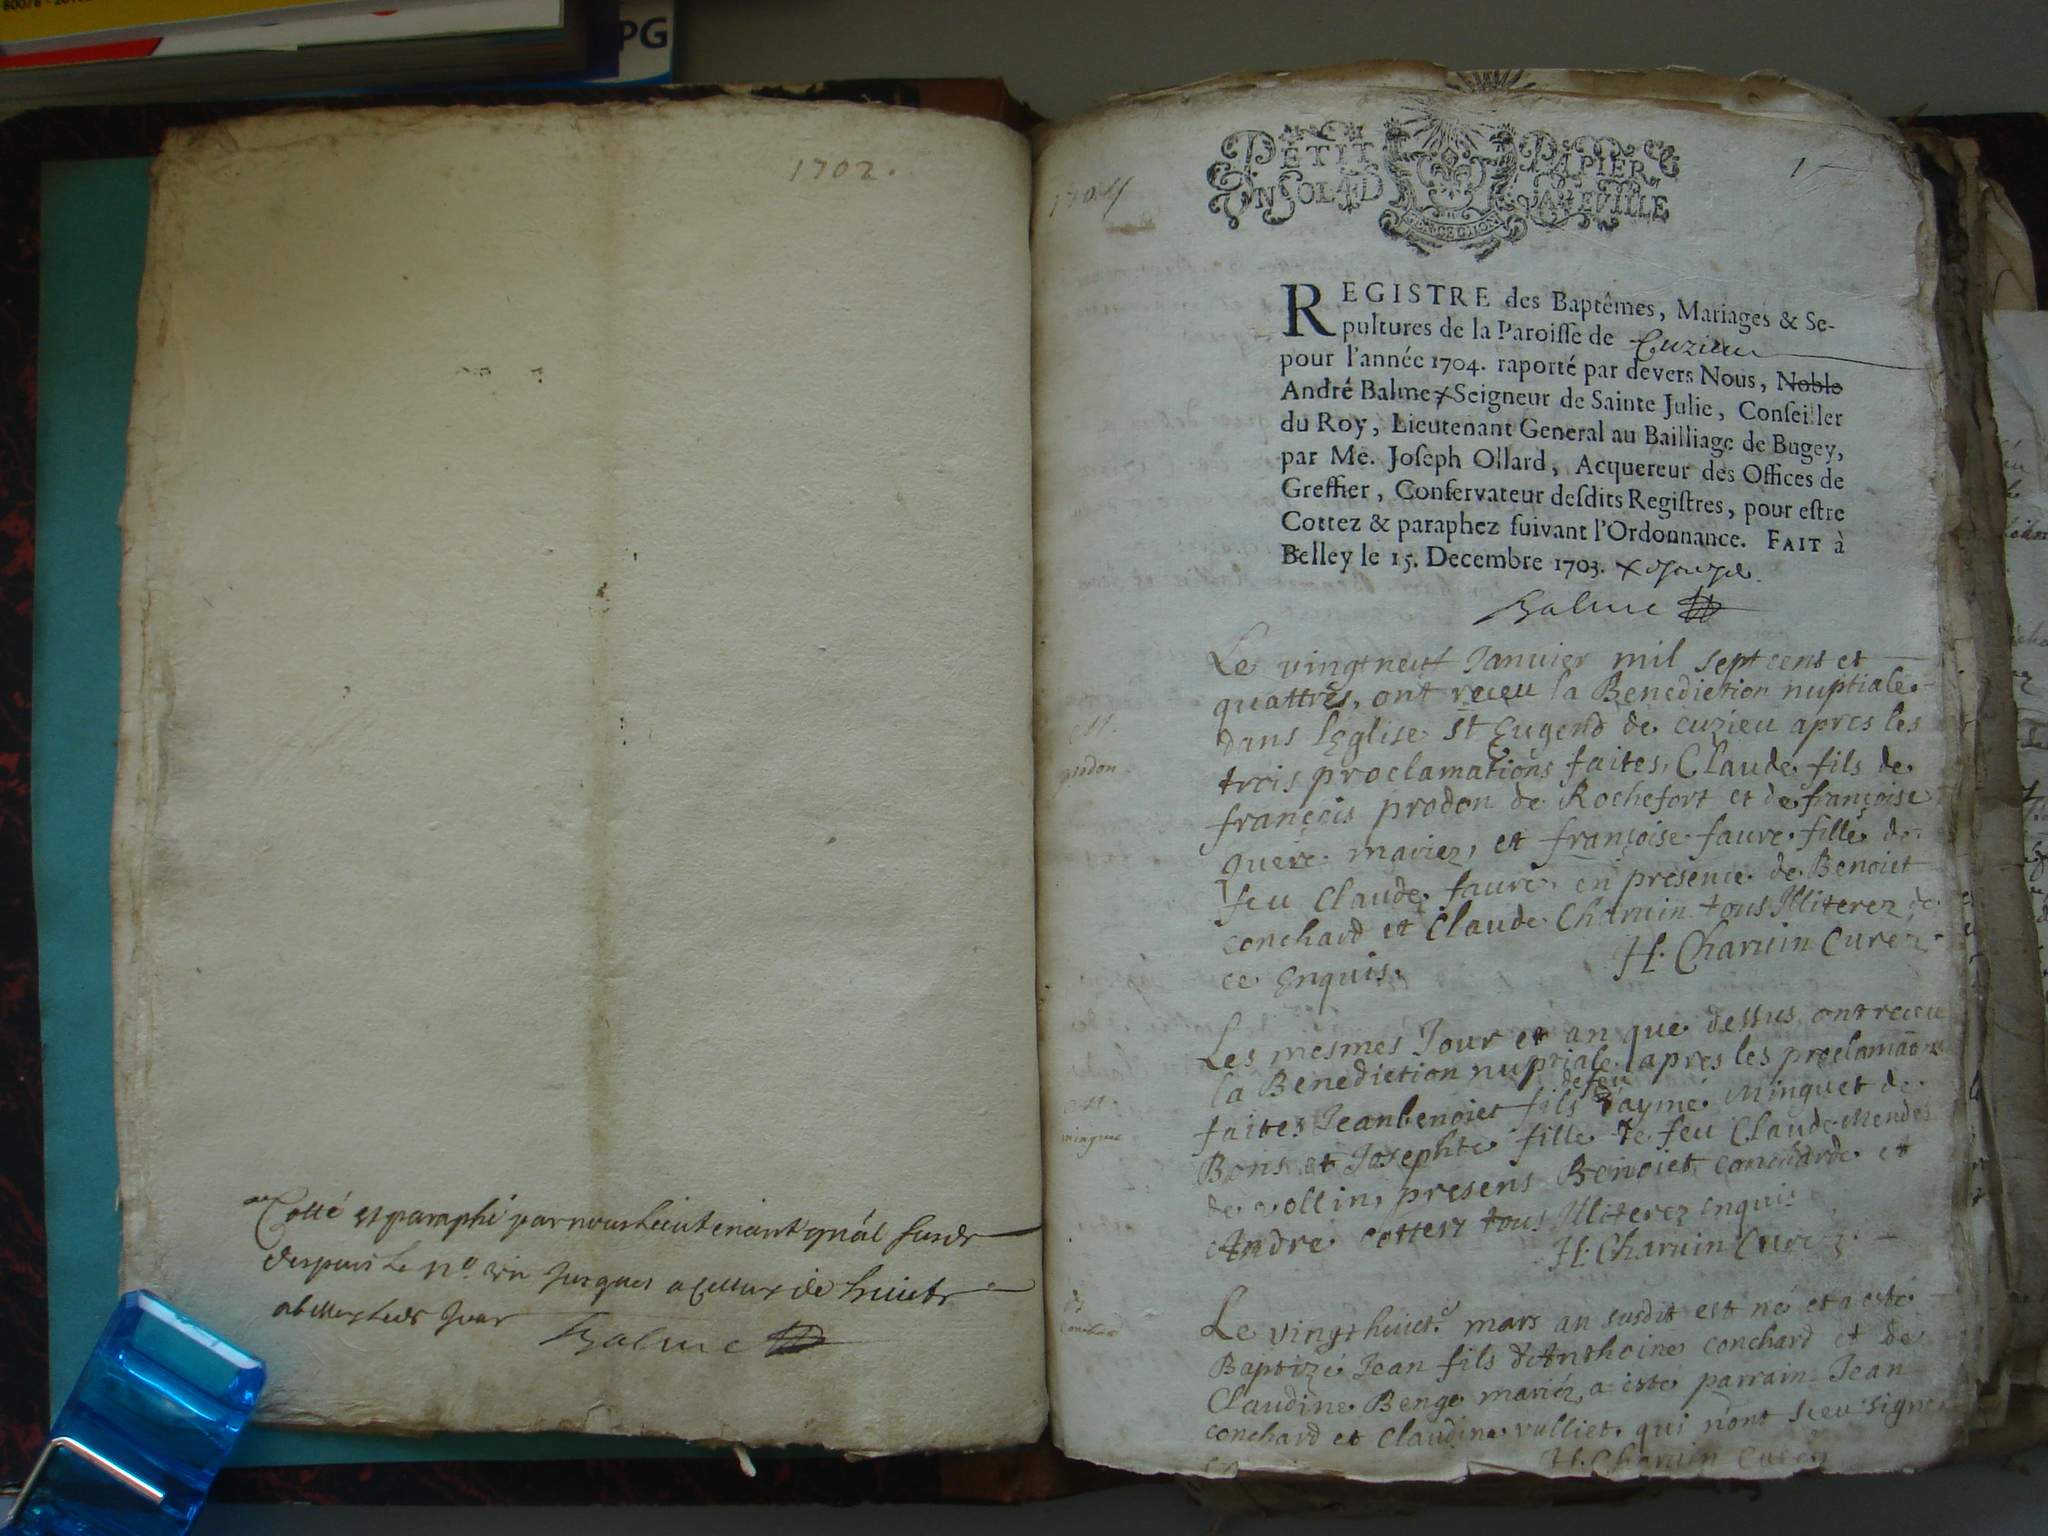 PG
1702.
Cotté et paraphé par nous Lieutenant gnāl susdt
despuis le no. un jusques a celluy de huict
Balme
1704
PETIT PAPIER
UN SOL 4 D LA FEUILLE
1
REGISTRE des Baptêmes, Mariages & Se-
pultures de la Paroisse de Cuzieu
pour l'année 1704. raporté par devers Nous, Noble
André Balme x Seigneur de Sainte Julie, Conseiller
du Roy, Lieutenant General au Bailliage de Bugey,
par Me. Joseph Ollard, Acquereur des Offices de
Greffier, Conservateur desdits Registres, pour estre
Cottez & paraphez suivant l'Ordonnance. FAIT à
Belley le 15. Decembre 1703. x
Balme
Le vingtneuf Janvier mil sept cent et
quattres, ont receu la Benediction nuptiale
dans l'Eglise St Eugend de cuzieu apres les
trois proclamations faites, Claude fils de
prodon
françois prodon de Rochefort et de françoise
quere mariez, et françoise faure fille de
feu Claude faure, en presence de Benoict
conchard et Claude Charvin tous Illiterez de
ce Enquis.
H. Charvin Curé
Les mesmes Jour et an que dessus ont receu
la Benediction nuptiale apres les proclamaõns
de feu
faites Jeanbenoict fils Aymé Minguet de
Bons et Josephte fille de feu Claude Mende
de vollin, presens Benoict conchard et
André cottez tous Illiterez enquis
H. Charvin Curé
Le vingthuict mars an susdit est né et a esté
Baptizé Jean fils d'Anthoine conchard et de
Claudine Benge mariéz, a este parrain Jean
conchard et Claudine vulliet qui n'ont sceu signer
H. Charvin Curé